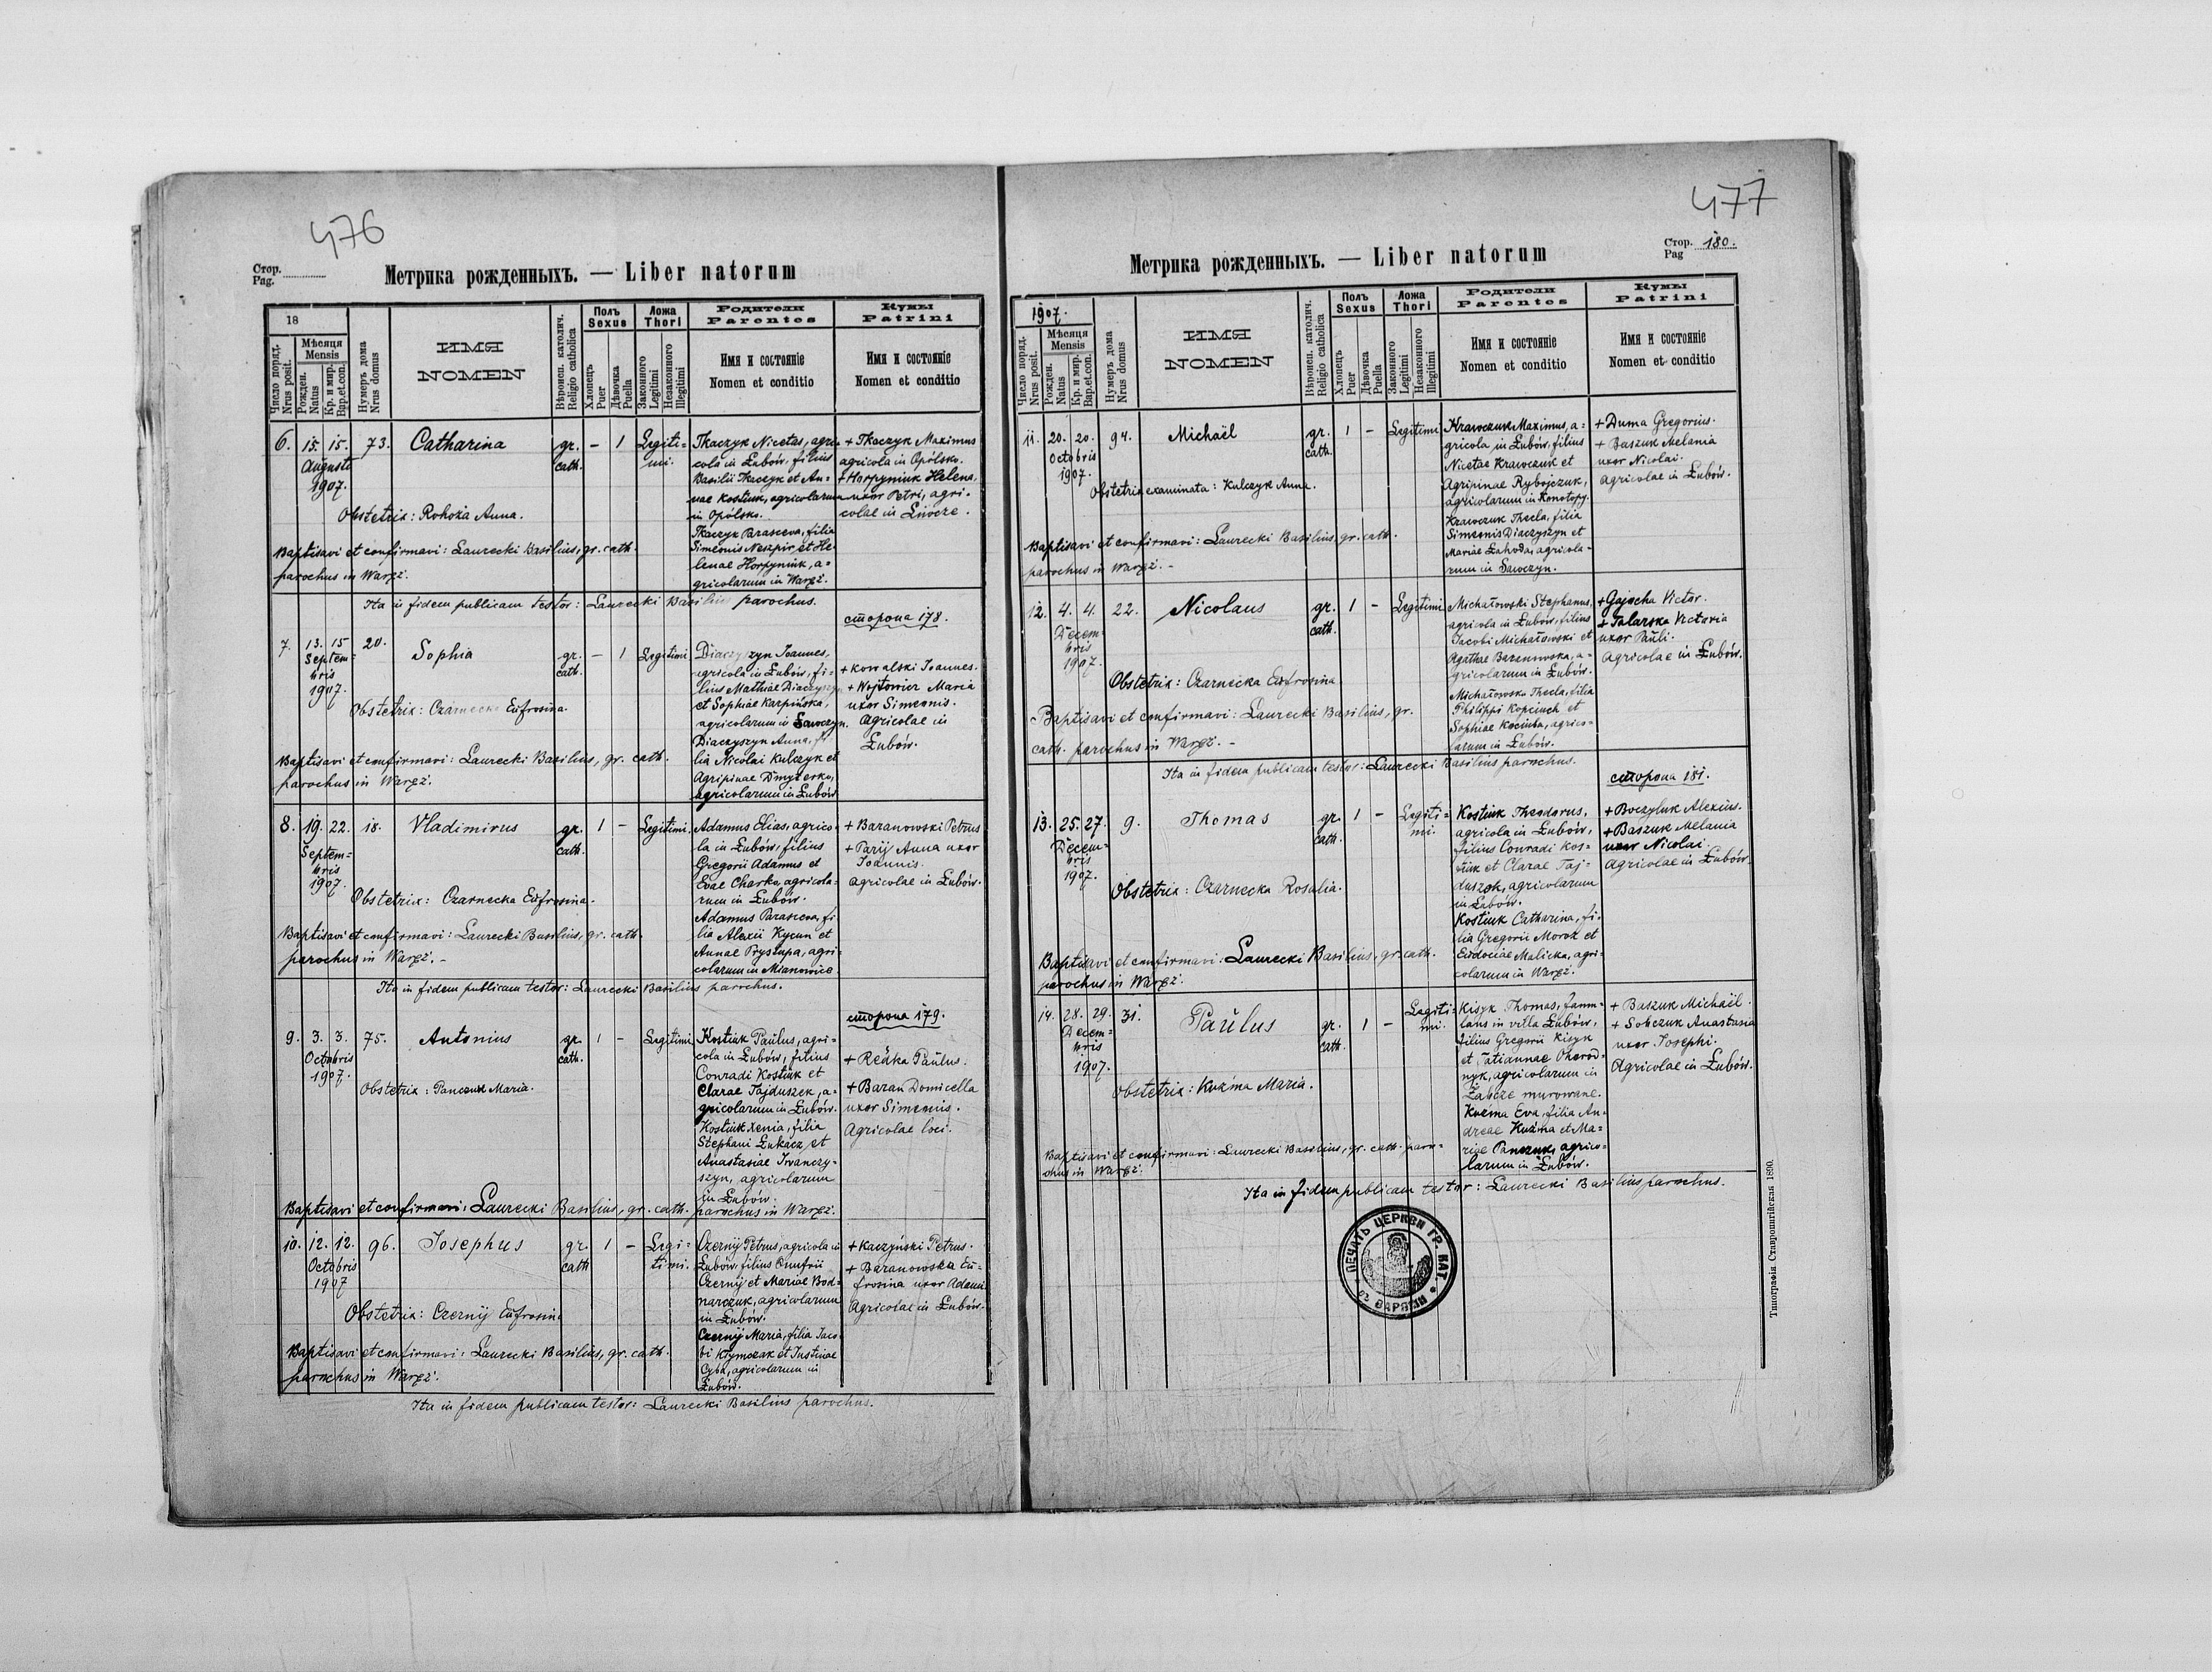 476
Стор.
Pag.
Метрика рожденныхъ. — Liber natorum
18
Число поряд.
Nrus posit.
Мѣсяця
Mensis
Рожден.
Natus
Кр. и мир.
Bap. et con.
Нумеръ дома
Nrus domus
ИМЯ
NOMEN
Вѣроисп. католич.
Religio catholica
Полъ
Sexus
Хлопецъ
Puer
Дѣвочка
Puella
Ложа
Thori
Законного
Legitimi
Незаконного
Illegitimi
Родители
Parentes
Имя и состоянiе
Nomen et conditio
Кумы
Patrini
Имя и состоянiе
Nomen et conditio
6. 15. 15. 73. Catharina gr. – 1 Legiti-
Augusti cath. mi.
1907.
Tkaczyk Nicetas, agri-
cola in Łubów, filius
Basilii Tkaczyk et An-
nae Kostiuk, agricolarum
in Opólsko.
Tkaczyk Parasceva, filia
Simeonis Neszpir, et He-
lenae Horpyniuk, a-
gricolarum in Waręż.
+ Tkaczyk Maximus
agricola in Opólsko.
+ Horpyniuk Helena,
uxor Petri, agri-
colae in Liwcze.
Obstetrix: Rohoża Anna.
Baptisavi et confirmavi: Laurecki Basilius, gr. cath.
parochus in Waręż.
Ita in fidem publicam testor: Laurecki Basilius parochus.
сторона 178.
7. 13. 15 20. Sophia gr. – 1 Legitimi
Septem- cath.
bris
1907.
Diaczyszyn Ioannes,
agricola in Łubów, fi-
lius Mathiae Diaczyszyn
et Sophiae Karpińska,
agricolarum in Sawczyn.
Diaczyszyn Anna, fi-
lia Nicolai Kulczyk et
Agripinae Dmyterko,
agricolarum in Łubów
+ Kowalski Ioannes.
+ Wojtowicz Maria
uxor Simeonis.
Agricolae in
Łubów.
Obstetrix: Czarnecka Eufrosina.
Baptisavi et confirmavi: Laurecki Basilius, gr. cath.
parochus in Waręż.
8. 19. 22. 18. Vladimirus gr. 1 – Legitimi.
Septem- cath.
bris
1907.
Adamus Elias, agrico-
la in Łubów, filius
Gregorii Adamus et
Evae Charko, agricola-
rum in Łubów.
Adamus Parasceva, fi-
lia Alexii Kycun et
Annae Prystupa, agri-
colarum in Mianowice
+ Baranowski Petrus
+ Parij Anna uxor
Ioannis.
agricolae in Łubów.
Obstetrix: Czarnecka Eufrosina.
Baptisavi et confirmavi: Laurecki Basilius, gr. cath.
parochus in Waręż. –
Ita in fidem publicam testor: Laurecki Basilius parochus.
сторона 179.
9. 3. 3. 75. Antonius gr. 1 – Legitimi
Octobris cath.
1907.
Kostiuk Paulus, agri-
cola in Łubów, filius
Conradi Kostiuk et
Clarae Tajduszek, a-
gricolarum in Łubów.
Kostiuk Xenia, filia
Stephani Łukacz et
Anastasiae Iwanczy-
szyn, agricolarum
in Łubów.
+ Redka Paulus.
+ Baran Domicella
uxor Simeonis.
Agricolae loci.
Obstetrix: Panczuk Maria.
Baptisavi et confirmavi: Laurecki Basilius, gr. cath. parochus in Waręż.
10. 12. 12. 96. Iosephus gr. 1 – Legi-
Octobris cath timi.
1907
Czernij Petrus, agricola in
Łubów, filius Onufrii
Czernij et Mariae Bod-
narczuk, agricolarum
in Łubów.
Czernij Maria, filia Iaco-
bi Kłymczak et Iustinae
Cyba, agricolarum in
Łubów.
+ Kaczyński Petrus.
+ Baranowska Eu-
frosina uxor Adami
Agricolae in Łubów.
Obstetrix: Czernij Eufrosina
Baptisavi et confirmavi: Laurecki Basilius, gr. cath.
parochus in Waręż.
Ita in fidem publicam testor: Laurecki Basilius parochus.
477
Стор. 180.
Pag
Метрика рожденныхъ. — Liber natorum
1907.
Число поряд.
Nrus posit.
Мѣсяця
Mensis
Рожден.
Natus
Кр. и мир.
Bap. et con.
Нумеръ дома
Nrus domus
ИМЯ
NOMEN
Вѣроисп. католич.
Religio catholica
Полъ
Sexus
Хлопецъ
Puer
Дѣвочка
Puella
Ложа
Thori
Законного
Legitimi
Незаконного
Illegitimi
Родители
Parentes
Имя и состоянiе
Nomen et conditio
Кумы
Patrini
Имя и состоянiе
Nomen et conditio
11. 20. 20. 94. Michaël gr. 1 – Legitimi
Octobris cath.
1907.
Krawczuk Maximus, a-
gricola in Łubów, filius
Nicetae Krawczuk et
Agripinae Rybojczuk,
agricolarum in Konotopy.
Krawczuk Thecla, filia
Simeonis Diaczyszyn et
Mariae Łahoda, agricola-
rum in Sawczyn.
+ Duma Gregorius.
+ Baszuk Melania
uxor Nicolai.
agricolae in Łubów.
Obstetrix examinata: Kulczyk Anna.
Baptisavi et confirmavi: Laurecki Basilius, gr. cath.
parochus in Waręż. –
12. 4. 4. 22. Nicolaus gr. 1 – Legitimi
Decem- cath.
bris
1907.
Michałowski Stephanus,
agricola in Łubów, filius
Iacobi Michałowski et
Agathae Baranowska, a-
gricolarum in Łubów.
Michałowska Thecla, filia
Philippi Kopciuch et
Sophiae Kociuba, agrico-
larum in Łubów.
+ Gajocha Victor.
+ Talarska Victoria
uxor Pauli.
agricolae in Łubów.
Obstetrix: Czarnecka Eufrosina
Baptisavi et confirmavi: Laurecki Basilius, gr.
cath. parochus in Waręż. –
Ita in fidem publicam testor: Laurecki Basilius parochus.
сторона 181.
13. 25. 27. 9. Thomas gr. 1 – Legiti-
Decem- cath. mi.
bris
1907.
Kostiuk Theodorus,
agricola in Łubów,
filius Conradi Kos-
tiuk et Clarae Taj-
duszek, agricolarum
in Łubów.
Kostiuk Catharina, fi-
lia Gregorii Moroz et
Eudociae Malicka, agri-
colarum in Waręż.
+ Boczyluk Alexius.
+ Baszuk Melania
uxor Nicolai.
agricolae in Łubów.
Obstetrix: Czarnecka Rosalia.
Baptisavi et confirmavi: Laurecki Basilius, gr. cath.
parochus in Waręż.
14. 28. 29. 31. Paulus gr. 1 – Legiti-
Decem- cath. mi.
bris
1907.
Kisyk Thomas, famu-
lans in villa Łubów,
filius Gregorii Kisyk
et Tatiannae Ohorod-
nyk, agricolarum in
Żabcze murowane.
Kuźma Eva, filia An-
dreae Kuźma et Ma-
riae Panczuk, agrico-
larum in Łubów.
+ Baszuk Michaël.
+ Sobczuk Anastasia
uxor Iosephi.
Agricolae in Łubów.
Obstetrix: Kuźma Maria.
Baptisavi et confirmavi: Laurecki Basilius, gr. cath. paro-
chus in Waręż.
Ita in fidem publicam testor: Laurecki Basilius parochus.
ПЕЧАТЬ ЦЕРКВИ ГР. КАТ.
Типографія Ставропигійская 1890.